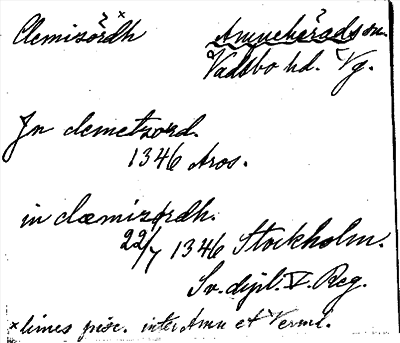 Clemizördh˟ Amnehärads sn.
Vadsbo hd. Vg.
Jn clemetzord.
1346 Aros.
in clæmizørdh.
22/7 1346 Stockholm.
Sv. dipl. V. Reg.
˟limes pisc. inter Amu et Verml.